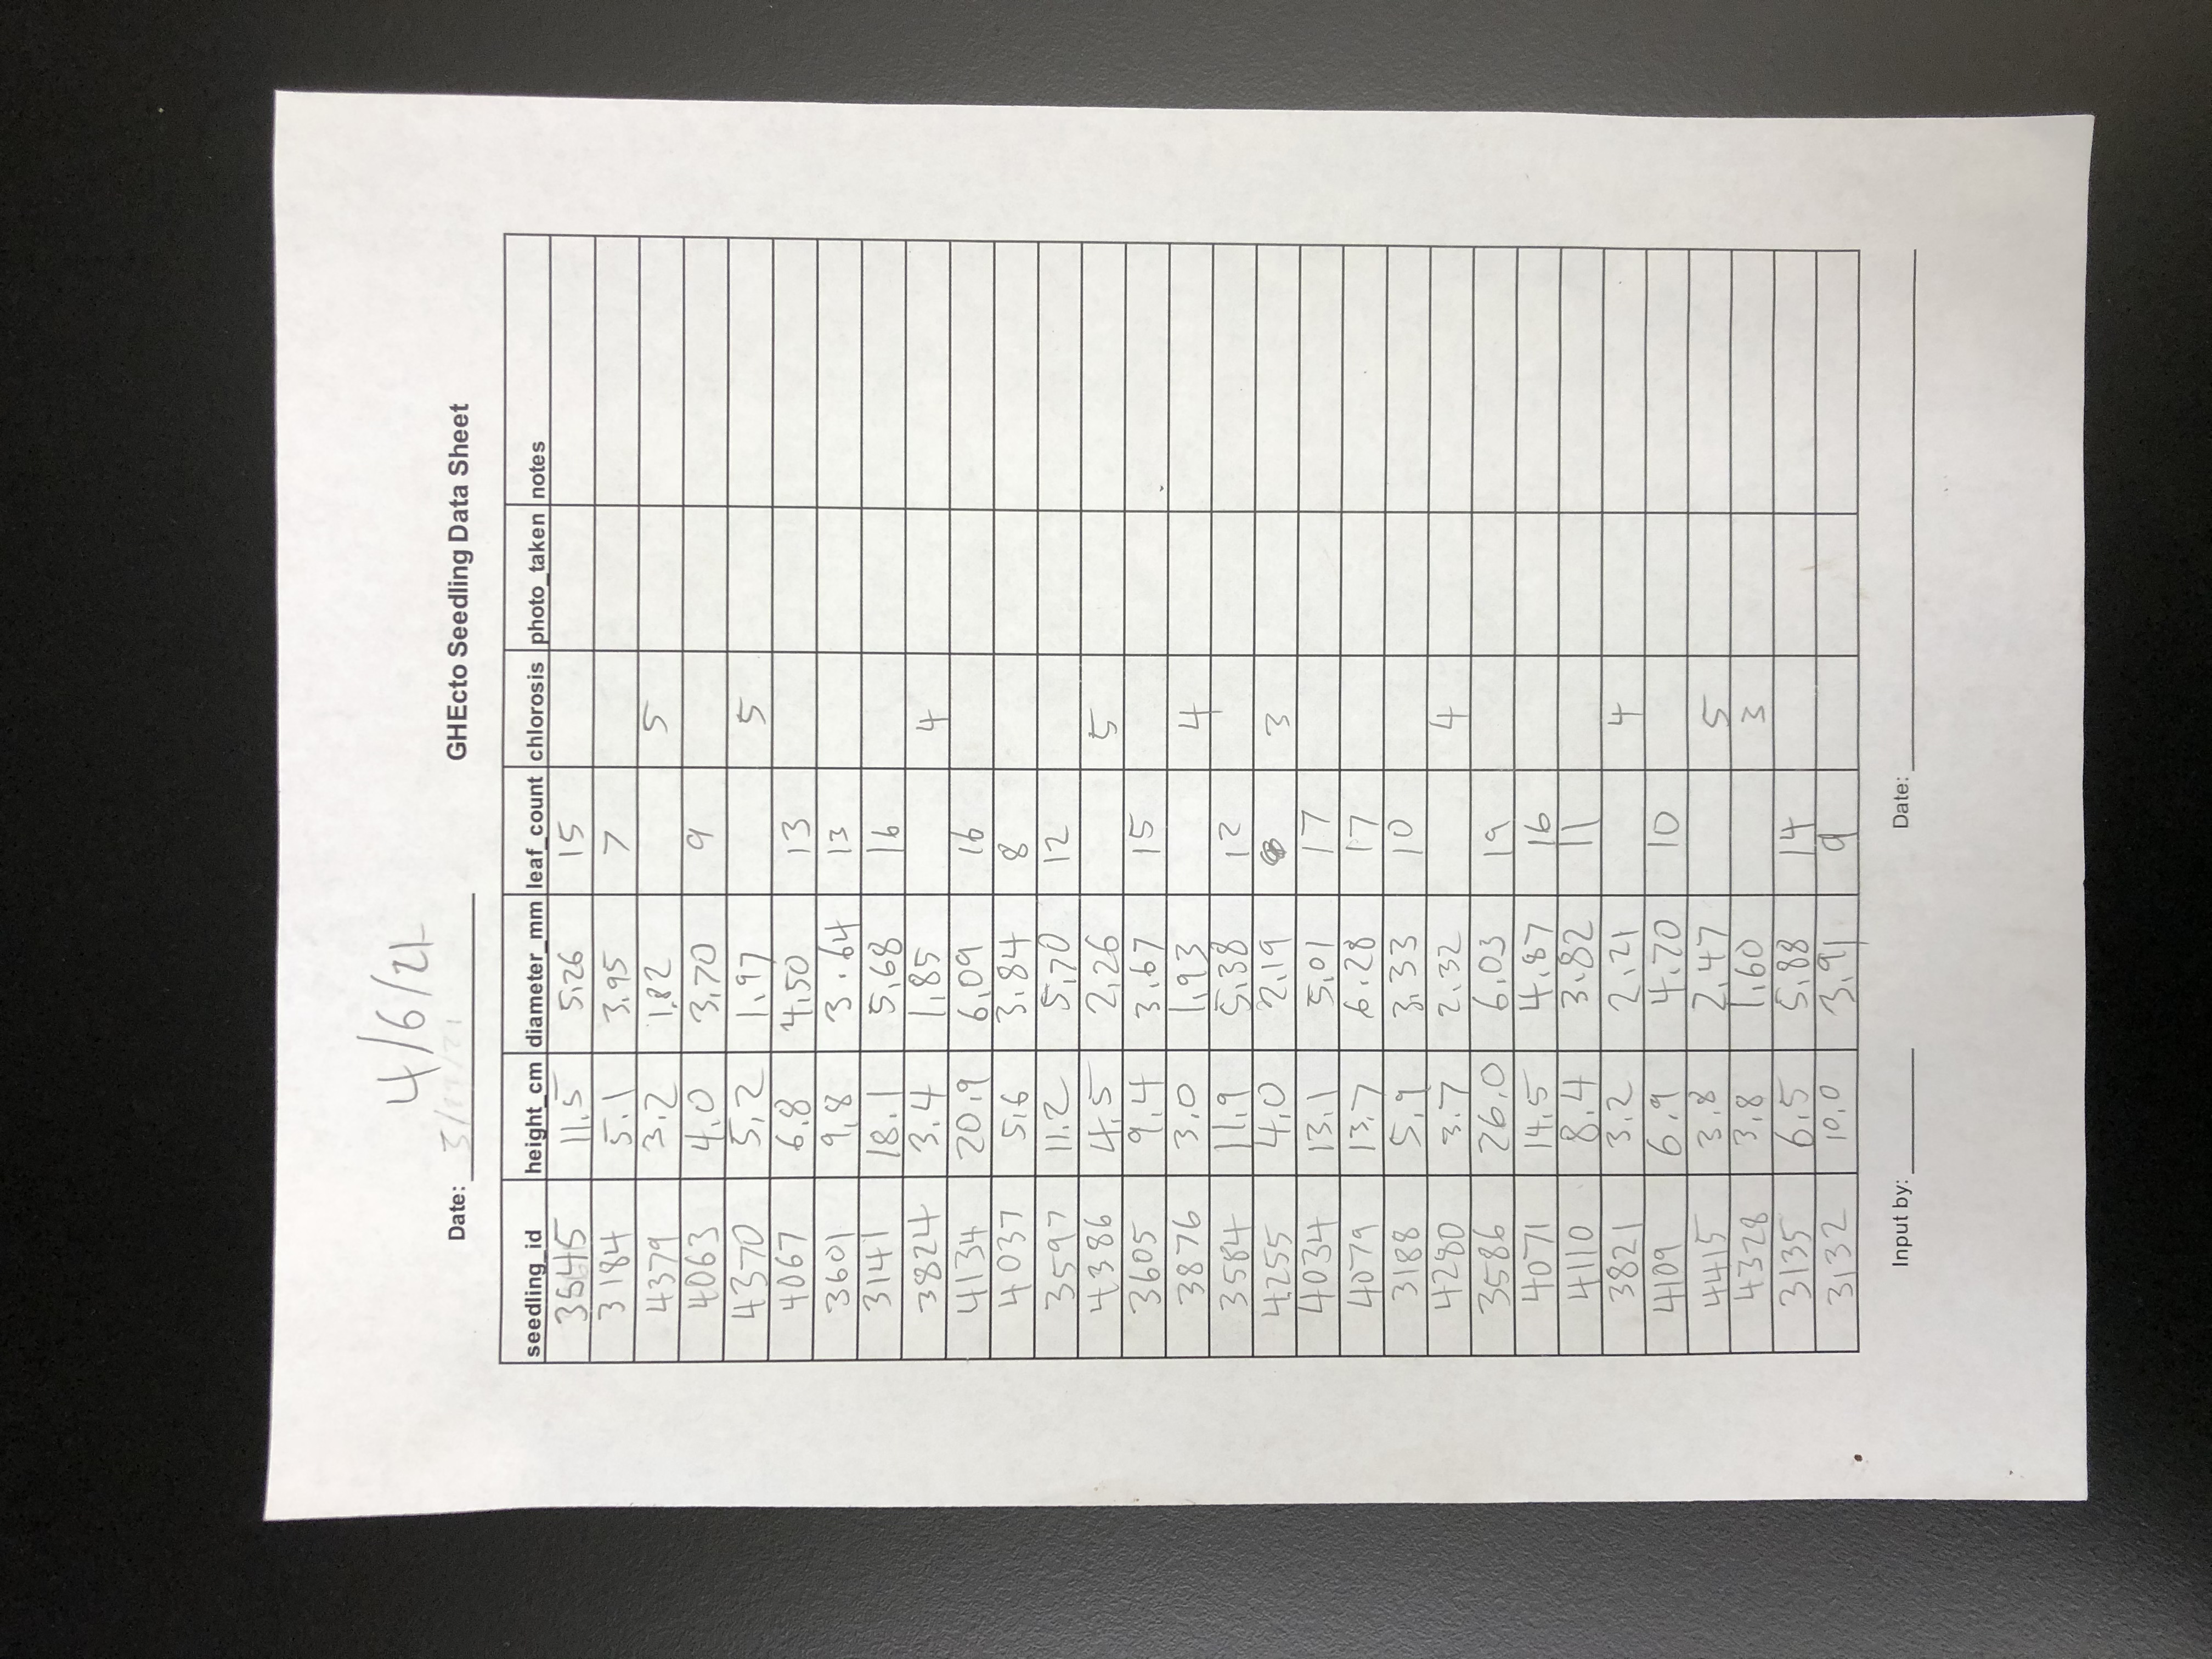 4/6/21
Date: 3/17/21
GHEcto Seedling Data Sheet
seedling_id height_cm diameter_mm leaf_count chlorosis photo_taken notes
11.5 5.26 15
3184 5.1 3.95 7
4379 3.2 1.82 5
4063 4.0 3.70 9
4370 5.2 1.97 5
4067 6.8 4.50 13
3601 9.8 3.64 13
3141 18.1 5.68 16
3824 3.4 1.85 4
4134 20.9 6.09 16
4037 5.6 3.84 8
3597 11.2 5.70 12
4386 4.5 2.26 5
3605 9.4 3.67 15
3876 3.0 1.93 4
3584 11.9 5.38 12
4255 4.0 2.19 3
4034 13.1 5.01 17
4079 13.7 6.28 17
3188 5.9 3.33 10
4280 3.7 2.32 4
3586 26.0 6.03 19
4071 14.5 4.87 16
4110 8.4 3.82 11
3821 3.2 2.21 4
4109 6.9 4.70 10
4415 3.8 2.47 5
4328 3.8 1.60 3
3135 6.5 5.88 14
3132 10.0 3.91 9
Input by: Date: